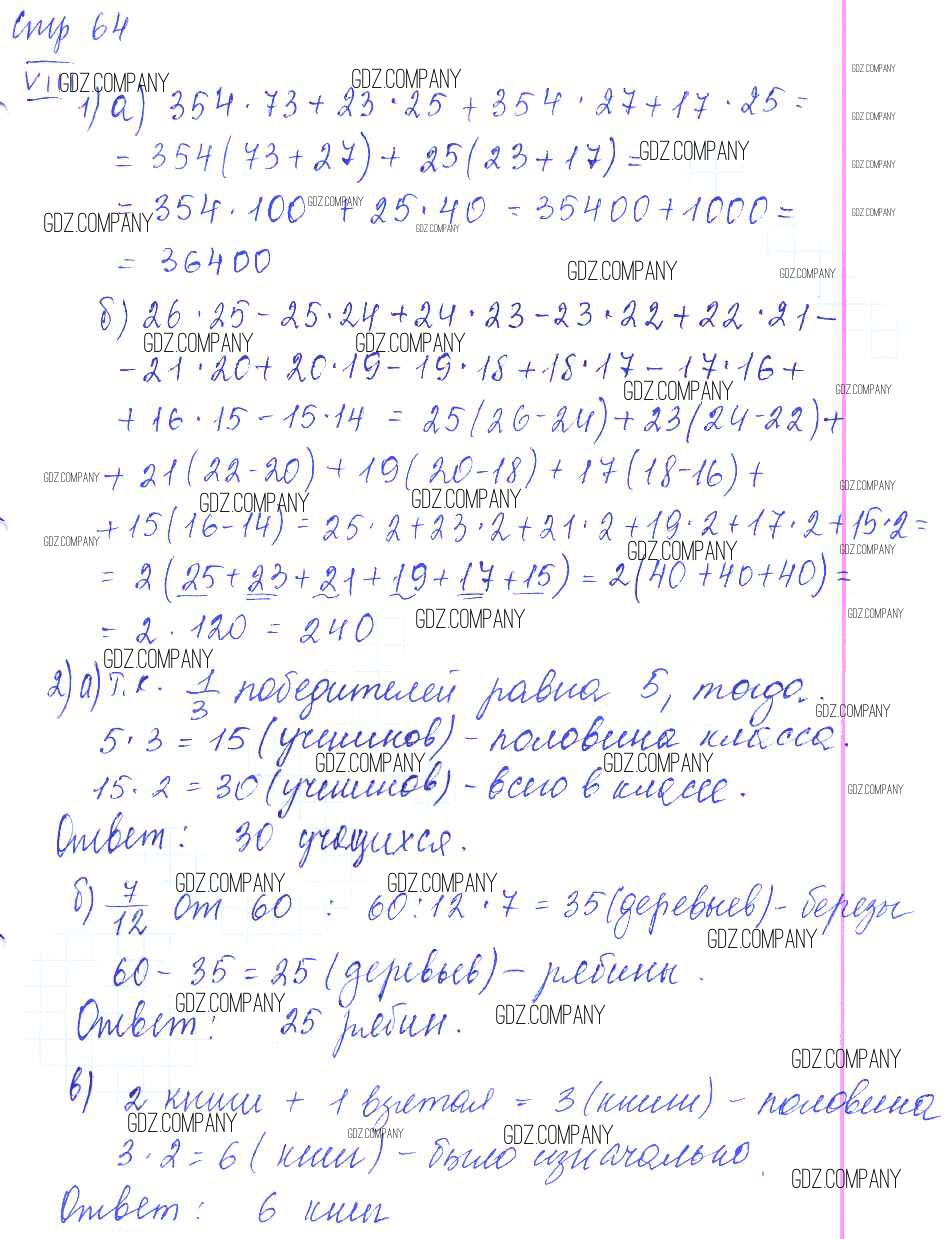 Стр 64
VIII
1) а) 354 · 73 + 23 · 25 + 354 · 27 + 17 · 25 =
= 354 ( 73 + 27 ) + 25 ( 23 + 17 ) =
= 354 · 100 + 25 · 40 = 35400 + 1000 =
= 36400
б) 26 · 25 - 25 · 24 + 24 · 23 - 23 · 22 + 22 · 21 -
- 21 · 20 + 20 · 19 - 19 · 18 + 18 · 17 - 17 · 16 +
+ 16 · 15 - 15 · 14 = 25 ( 26 - 24 ) + 23 ( 24 - 22 ) +
+ 21 ( 22 - 20 ) + 19 ( 20 - 18 ) + 17 ( 18 - 16 ) +
+ 15 ( 16 - 14 ) = 25 · 2 + 23 · 2 + 21 · 2 + 19 · 2 + 17 · 2 + 15 · 2 =
= 2 ( 25 + 23 + 21 + 19 + 17 + 15 ) = 2 ( 40 + 40 + 40 ) =
= 2 · 120 = 240
2) а) Т.к. 1/3 победителей равна 5, тогда
5 · 3 = 15 (учеников) - половина класса.
15 · 2 = 30 (учеников) - всего в классе.
Ответ: 30 учащихся.
б) 7/12 от 60 : 60 : 12 · 7 = 35 (деревьев) - березы
60 - 35 = 25 (деревьев) - рябины.
Ответ: 25 рябин.
в) 2 книги + 1 взятая = 3 (книги) - половина
3 · 2 = 6 ( книг ) - было изначально.
Ответ: 6 книг
GDZ.COMPANY